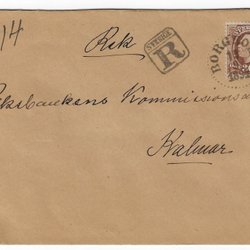 14
Rek
SVERIGE
R
BORG
Riksbankens Kommissions
Kalmar